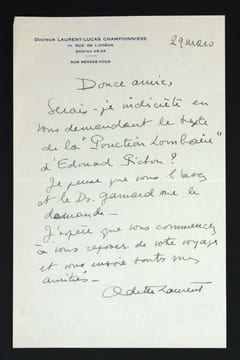 DOCTEUR LAURENT-LUCAS CHAMPIONNIÈRE
10, RUE DE L'ODÉON
DANTON 09-26
SUR RENDEZ-VOUS
29 mars
Douce amie,
Serais-je indiscrète en
vous demandant le texte
de la "Ponction Lombaire"
d'Edouard Pichon ?
Je pense que vous l'avez
et le Dr. me le
demande -
J'espère que vous commencez
à vous reposer de votre voyage
et vous envoie toutes mes
amitiés -
Odette Laurent